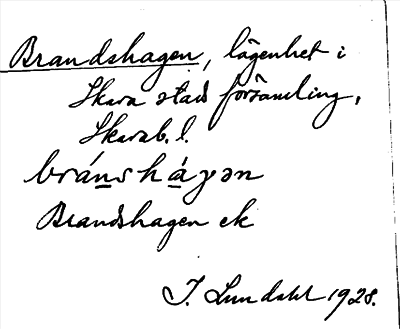 Brandshagen, lägenhet i
Skara stads församling,
Skarab. l.
bránshágən
Brandshagen ek
J. Lundahl 1928.